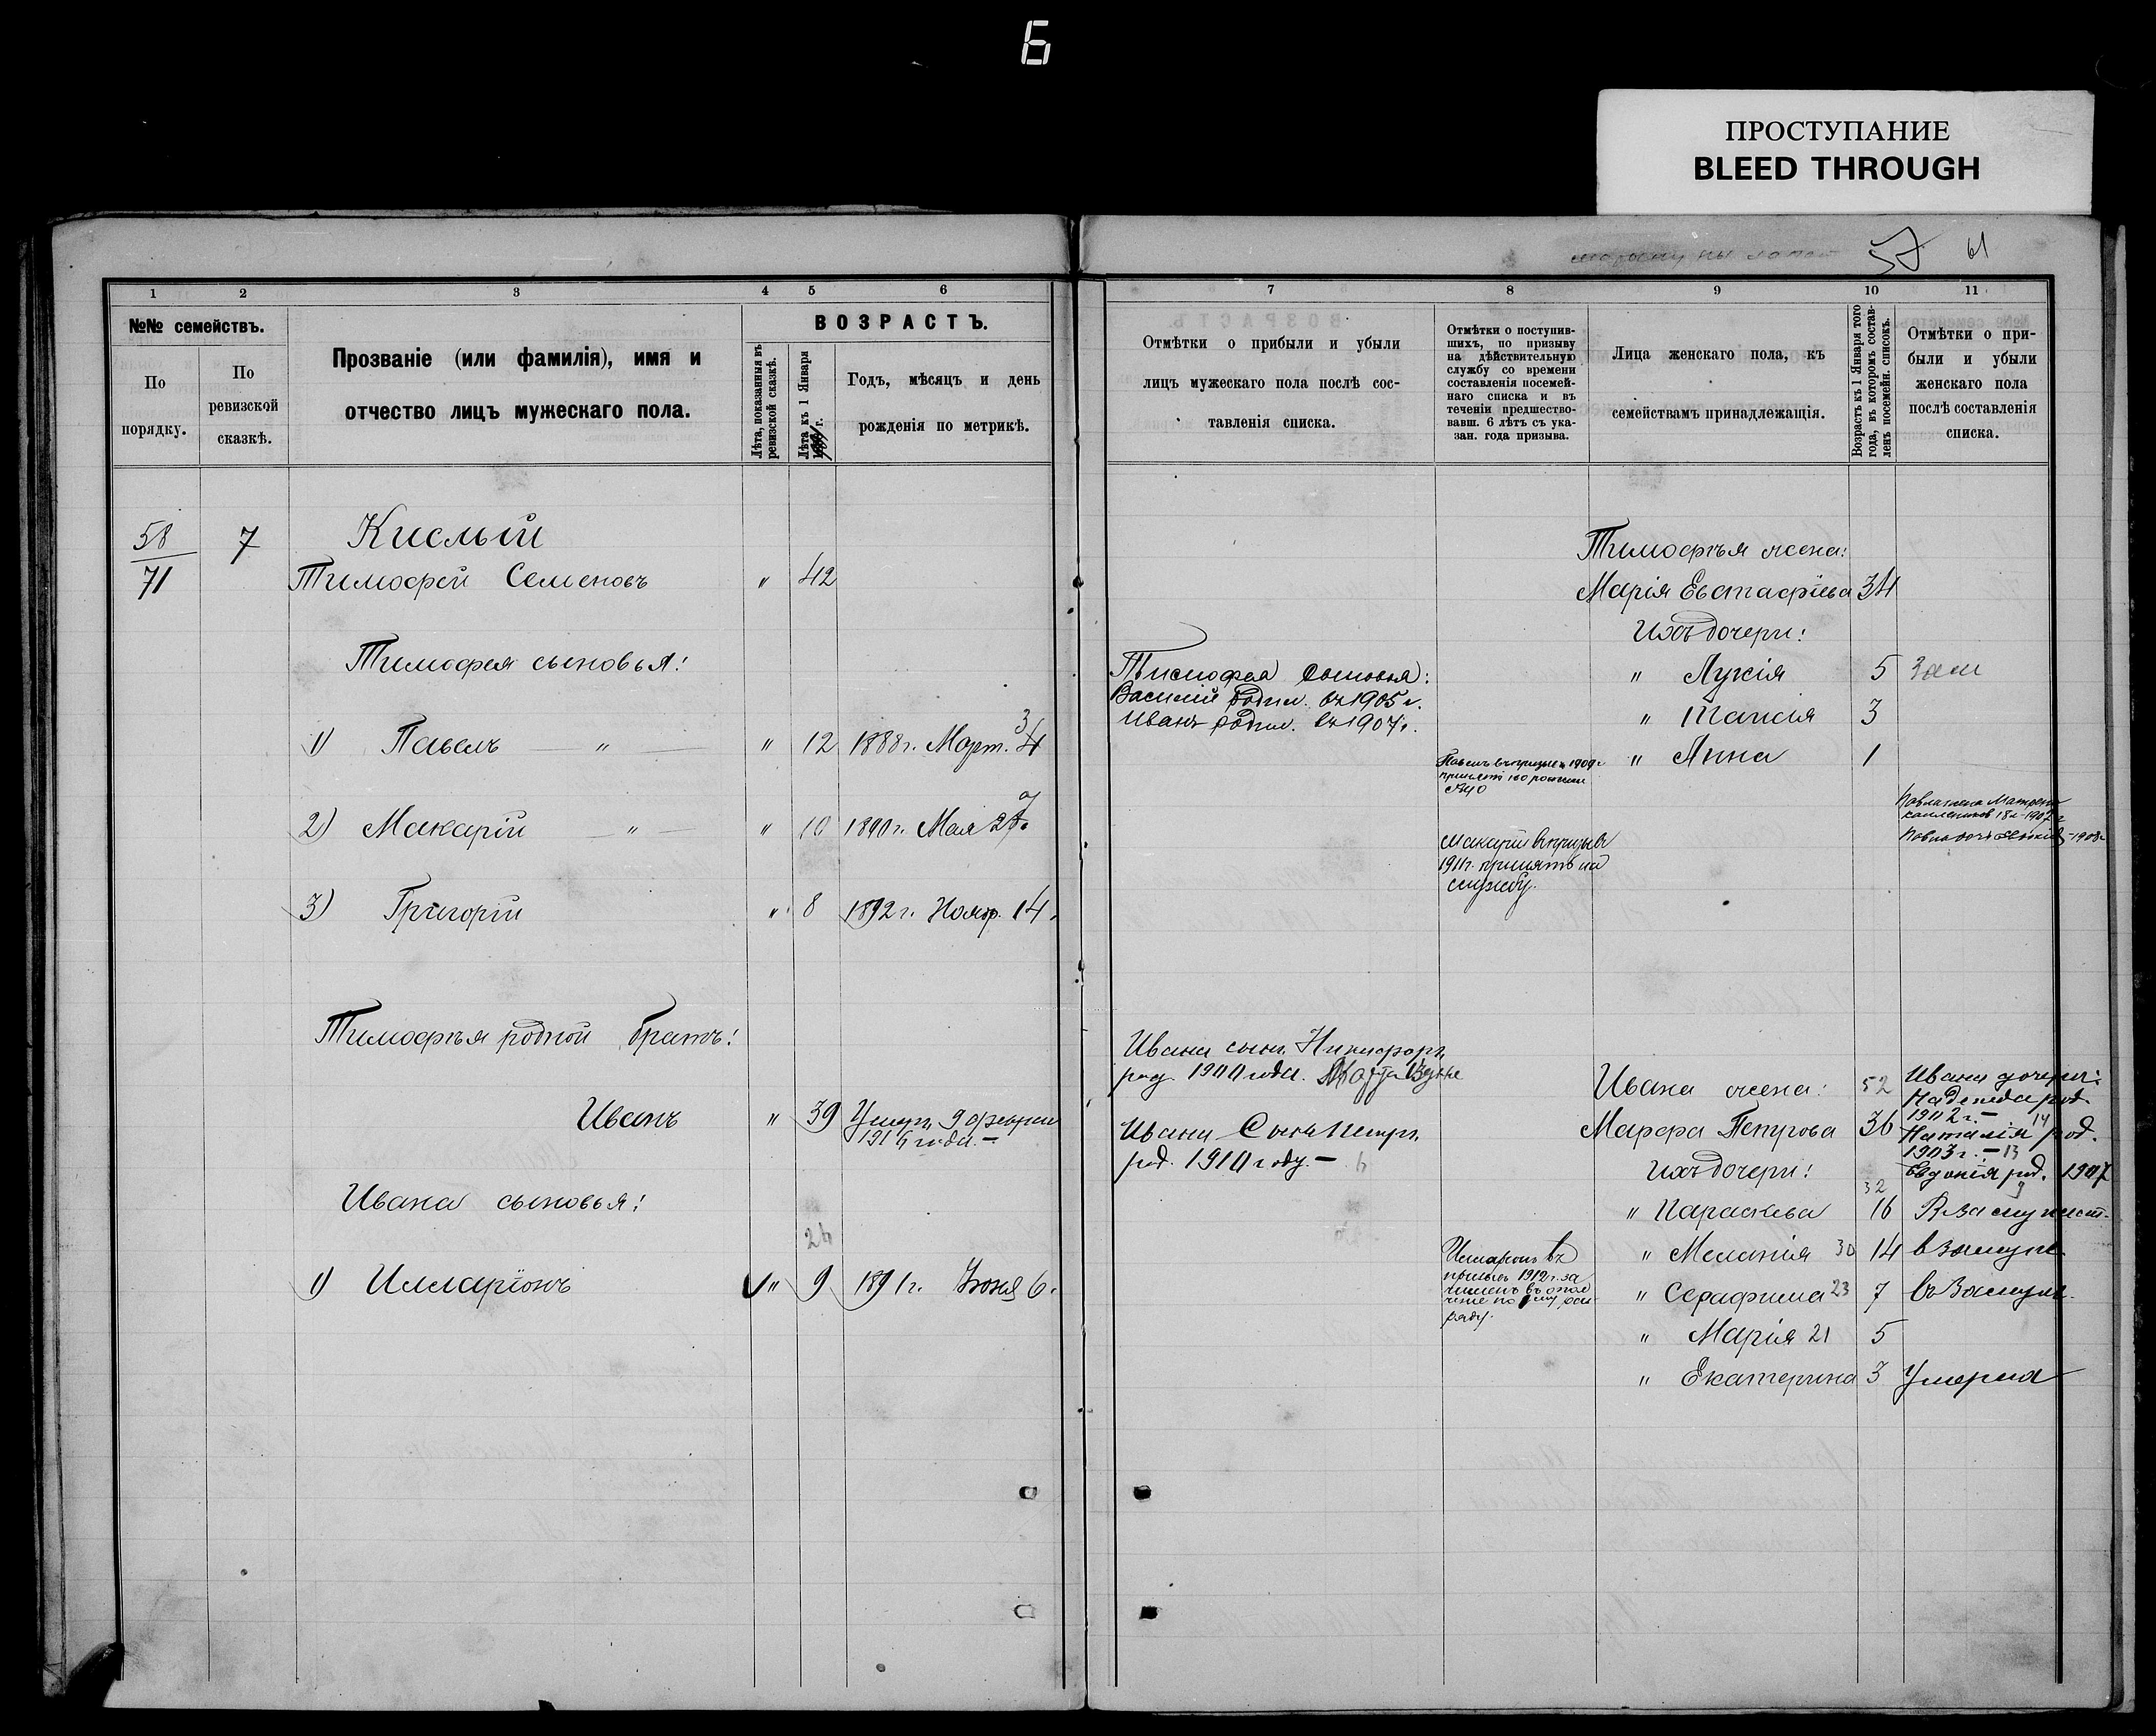 6
ПРОСТУПАНИЕ
BLEED THROUGH
57 61
1 2 3 4 5 6
№№ семействъ.
По порядку.
По ревизской сказкѣ.
Прозваніе (или фамилія), имя и
отчество лицъ мужескаго пола.
ВОЗРАСТЪ.
Лѣта, показанныя въ
ревизской сказкѣ.
Лѣта къ 1 Января
г.
Годъ, мѣсяцъ и день
рожденія по метрикѣ.
7 8 9 10 11
Отмѣтки о прибыли и убыли
лицъ мужескаго пола послѣ сос-
тавленія списка.
Отмѣтки о поступив-
шихъ, по призыву
на дѣйствительную
службу со времени
составленія посемей-
наго списка и въ
теченіи предшество-
вавш. 6 лѣтъ съ ука-
зан. года призыва.
Лица женскаго пола, къ
семействамъ принадлежащія.
Возрастъ къ 1 Января того
года, въ которомъ состав-
ленъ посемейн. списокъ.
Отмѣтки о при-
были и убыли
женскаго пола
послѣ составленія
списка.
58 7 Кислый
71 Тимофей Семеновъ " 42
Тимофея сыновья:
1) Павелъ — " — " 12 1888 г. Март. 4
3
2) Макарій — " — " 10 1890 г. Мая
3) Григорій " 8 1892 г. Нояр. 14.
Тимофѣя родной братъ:
Иванъ " 39 Умер. 9 феврал
1916 года. —
Ивана сыновья:
26
1) Илларіонъ " 9 1891 г. Іюня 6.
Тимофея сыновья:
Василій родил. въ 1905 г.
Иванъ родил. въ 1907 г.
Ивана сынъ Никифоръ
род. 1900 года. Марта
Ивана Сынъ Петръ
род. 1910 году. — 6
Павелъ въ призыв 1909 г
принятъ
Макарій въ призывъ
1911 г. принятъ на
службу.
Иларіонъ въ
призывъ 1912 г. за
численъ въ опол
чение по му раз
ряду.
Тимофѣя жена:
Марія Евстафіева 34
Ихъ дочери:
" Лукія 5 Зам
" Таисія 3
" Анна 1
Павла жена Матрена
18 л - 1907 г
Павла дочь - 1908 г
Ивана жена: 52
Марфа Петрова 36
Ихъ дочери:
32
" Параскева 16 В замужест.
" Меланія 30 14 в замуж
" Серафима 23 7 въ Замуж.
" Марія 21 5
" Екатерина 3 Умерла
Ивана дочери:
Надежда род
1902 г. — 14
Наталія род.
1903 г. — 13
Евдокія род. 1907
9